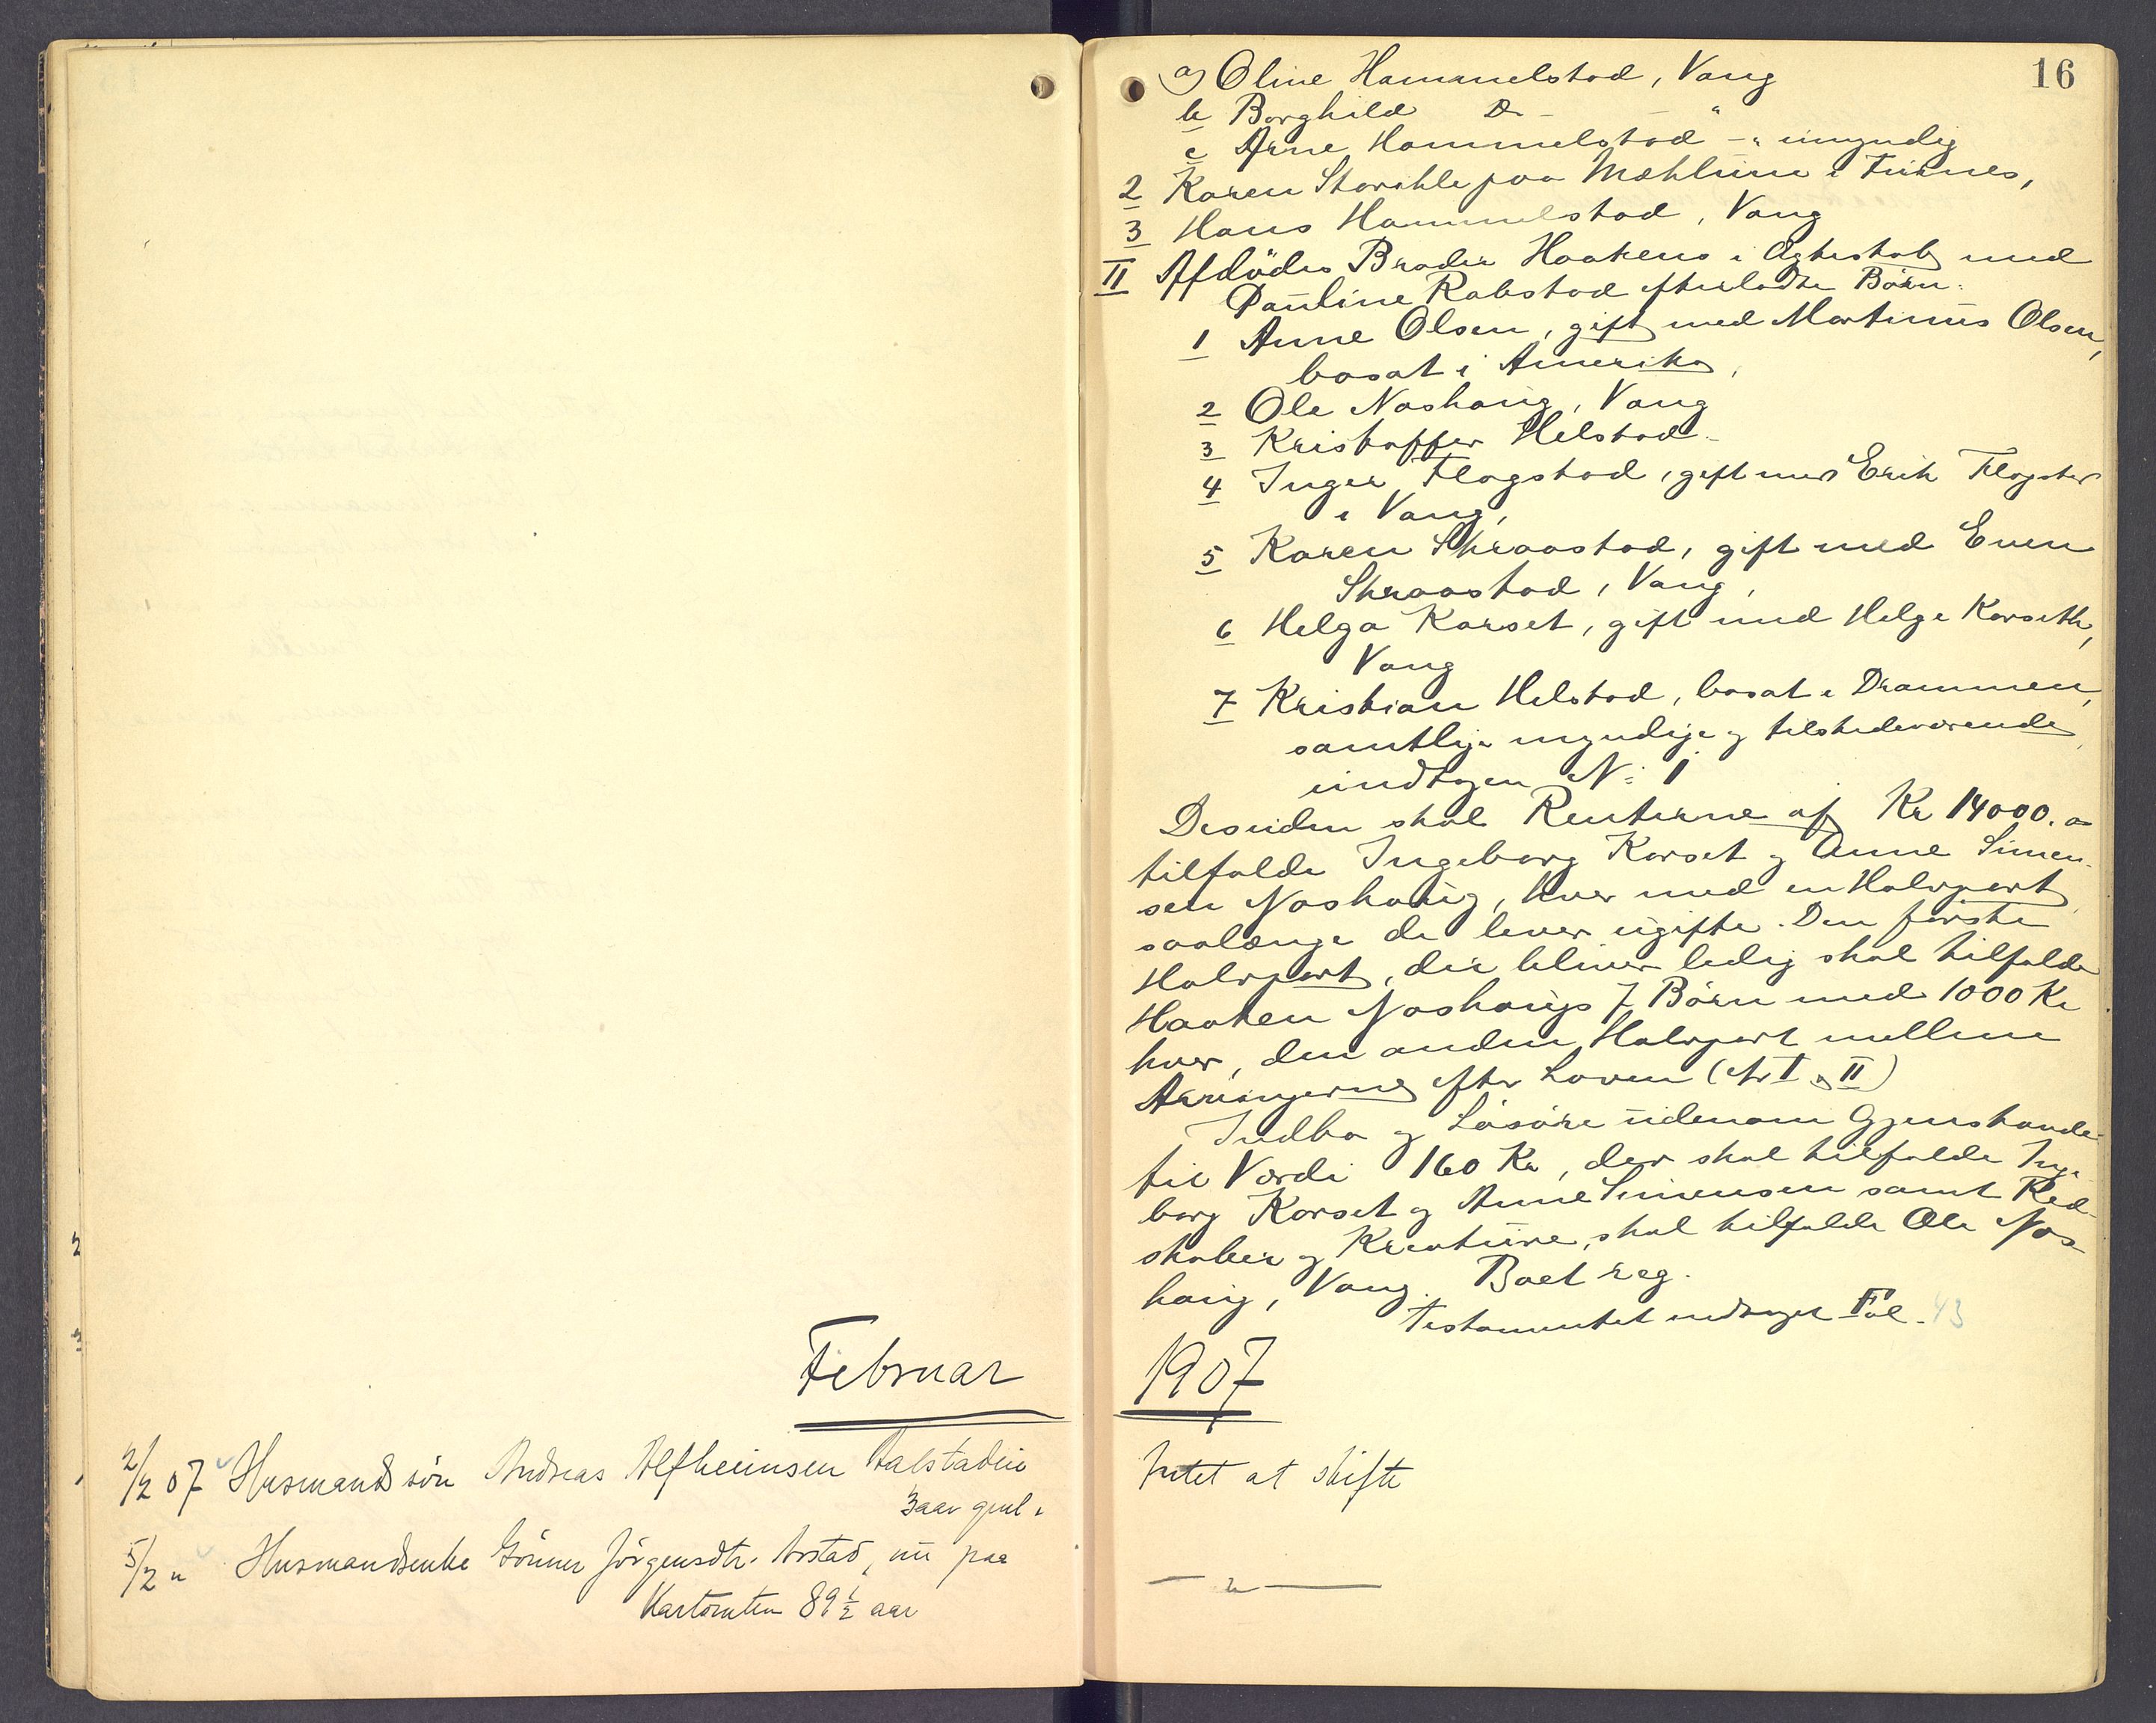 Februar
2/2 07 Husmandssön Andreas Alfheimsen Aalstadeie
3 aar gml.
5/2 " Husmandsenke Gönner Jörgensdtr. Arstad, nu paa
89½ aar
16
a) Oline Hammelstad, Vang
b Borghild Do - - "
c Arne Hammelstad - " umyndig
2 Karen Storihle paa Mæhlum i Furnes,
3 Hans Hammelstad, Vang
II Afdödes Broder Haakens i Ægteskab med
Pauline Rabstad efterladte Börn:
1 Anne Olsen, gift med Martinus Olsen,
bosat i Amerika,
2 Ole Noshaug, Vang
3 Kristoffer Helstad -
4 Inger Flagstad, gift med Erik Flagstad
i Vang,
5 Karen Skraastad, gift med Even
Skraastad, Vang,
6 Helga Karset, gift med Helge Karseth,
Vang
7 Kristian Helstad, bosat i Drammen,
samtlige myndige og tilstedeværende
undtagen No 1
Desuden skal Renterne af Kr 14000.00
tilfalde Ingeborg Korset og Anne Simen-
sen Noshaug, hver med en Halvpart,
saalænge de lever ugifte. Den förste
Halvpart, der bliver ledig skal tilfalde
Haaken Noshaugs 7 Börn med 1000 Kr
hver, den anden Halvpart mellem
Arvingerne efter Loven (No I & II)
Indbo og Lösöre udenom Gjenstande
til Værdi 160 Kr, der skal tilfalde Inge
borg Korset og Anne Simensen samt Red-
skaber og Kreature, skal tilfalde Ole Nos-
haug, Vang. Boet reg.
Testamentet indtaget Fol. 43
1907
Intet at skifte
— " —